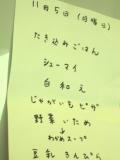 11月5日（月曜日）
たき込みごはん
シューマイ
白和え
じゃがいもピザ
野菜いため
↓
わかめスープ
豆乳きんぴら